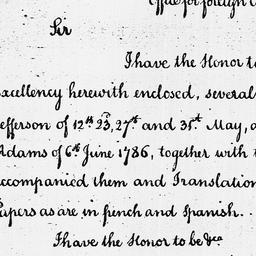 Office for foreign
Sir
I have the Honor to
Excellency herewith enclosed, several
Jefferson of 12th 23d, 27th and 31st May, a
Adams of 6th June 1786, together with t
accompanied them and Translation
Papers as are in french and Spanish.
I have the Honor to be &ca